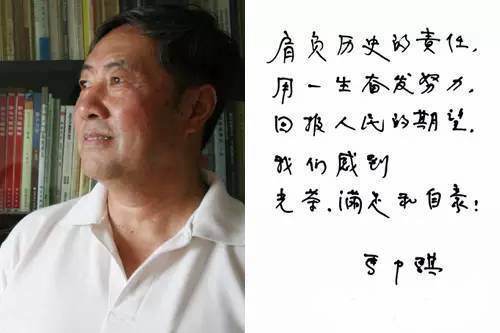 肩负历史的责任,
用一生奋发努力,
回报人民的期望.
我们感到
光荣.满足和自豪!